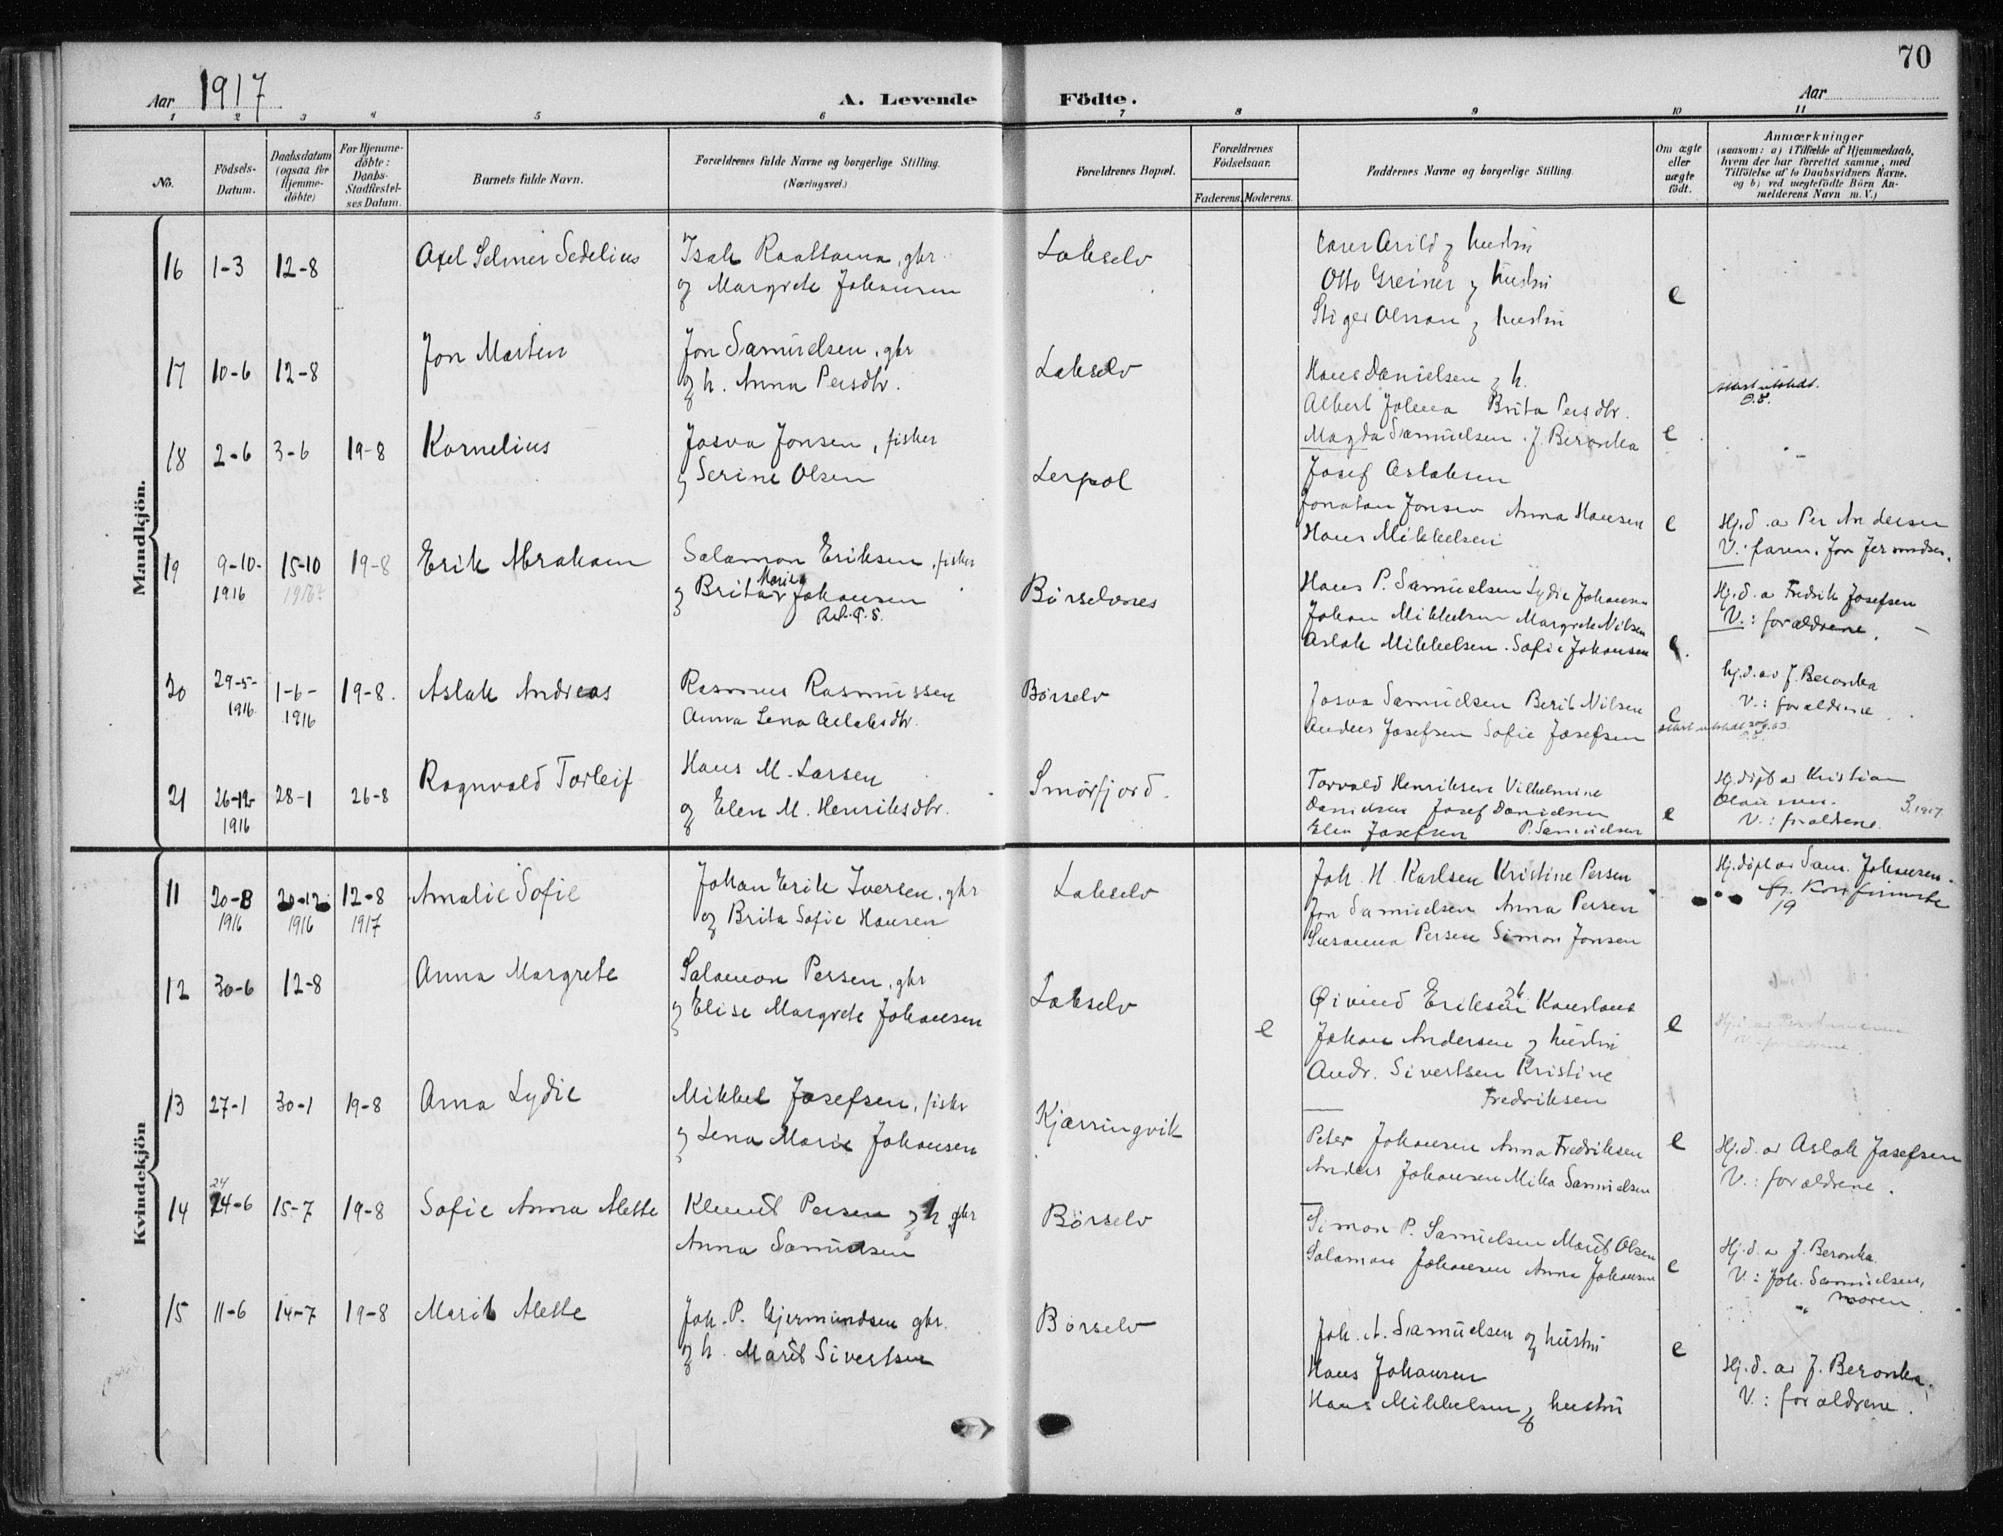 70
Aar 1917
A. Levende Födte.
Aar
1 2 3 4 5 6 7 8 9 10 11
No.
Födsels-Datum.
Daabsdatum (ogsaa for Hjemme-döbte)
For Hjemme-döbte: Daabs-Stadfæstel-ses Datum.
Barnets fulde Navn.
Forældrenes fulde Navne og borgerlige Stilling. (Næringsvei.)
Forældrenes Bopæl.
Forældrenes Födselsaar.
Faderens. Moderens.
Faddernes Navne og borgerlige Stilling.
Om ægte eller uægte födt.
Anmærkninger (saasom: a) i Tilfælde af Hjemmedaab, hvem der har forrettet samme, med Tilföielse af to Daabsvidners Navne, og b) ved uægtefödte Börn Anmelderens Navn m. V.)
Mandkjön.
16 1-3 12-8 Axel Selmer Sedelius
Isak Raattama, gbr
og Margrete Johansen
Lakselv
Arild og hustru
Otto Greiner og hustru
Olsson og hustru
e
17 10-6 12-8 Jon Marten
Jon Samuelsen, gbr
og h. Anna Persdtr.
Lakselv
Hans Danielsen og h.
Albert Johma Brita Persdtr.
Magda Samuelsen. J. Beronka
e
18 2-6 3-6 19-8 Kornelius
Josva Jonsen, fisker
og Serine Olsen
Lerpol
Josef Aslaksen
Jonatan Jonsen Anna Hansen
Hans Mikkelsen
e
Hj.d. av Per Andersen
V.: faren, Jon
19 9-10-1916 15-10 1916 19-8 Erik Abraham
Salamon Eriksen, fisker
og Brita Maria Johansen
Børselvnes
Hans P. Samuelsen Lydie Johansen
Johan Mikkelsen Margrete Nilsen
Aslak Mikkelsen. Sofie Johansen
e.
Hj.d. av Fredrik Josefsen
V.: forældrene.
20 29-5-1916 1-6-1916 19-8. Aslak Andreas
Rasmus Rasmussen
Anna Lena Aslaksdtr.
Børselv
Josva Samuelsen Berit Nilsen
Anders Josefsen Sofie Josefsen
e
hj.d. av J. Beronka
V.: forældrene
21 26-12-1916 28-1 26-8 Ragnvald Torleif
Hans M. Larsen
og Elen M. Henriksdtr.
Smørfjord.
Torvald Henriksen Vilhelmine
Danielsen Josef Danielsen
Elen Josefsen P. Samuelsen
e
Hj.døpt av Kristian
V.: forældrene. 3.1917
Kvindekjön
11 20-12 1916 12-8 1917 Amalie Sofie
Johan Erik Iversen, gbr
og Brita Sofie Hansen
Lakselv
Joh. H. Karlsen Kristine Persen
Jon Samuelsen Anna Persen
Susanna Persen Simon Jonsen
Hj.døpt av Sam. Johansen.
19
12 30-6 12-8 Anna Margrete
Salamon Persen, gbr
og Elise Margrete Johansen
Lakselv
e
Øivind Eriksen
Johan Andersen og hustru
Andr. Sivertsen Kristine
Fredriksen
e
13 27-1 30-1 19-8 Anna Lydie
Mikkel Josefsen, fisker
og Lena Marie Johansen
Kjærringvik
Peter Johansen Anna Fredriksen
Anders Johansen Mika Samuelsen
e
Hj.d. av Aslak Josefsen
V.: forældrene.
14 24-6 15-7 19-8 Sofie Anna Alette
Klemet Persen og h gbr
Anna Samuelsen
Børselv
Simon P. Samuelsen Marit Olsen
Salamon Johansen Anna Johansen
e
Hj.d. av J. Beronka
V.: Joh. Samuelsen,
moren
15 11-6 14-7 19-8 Marit Alette
Joh. P. Gjermundsen gbr.
og h. Marit Sivertsen
Børselv
Joh. A. Samuelsen og hustru
Hans Johansen
Hans Mikkelsen og hustru
e
Hj.d. av J. Beronka.
V.: forældrene.